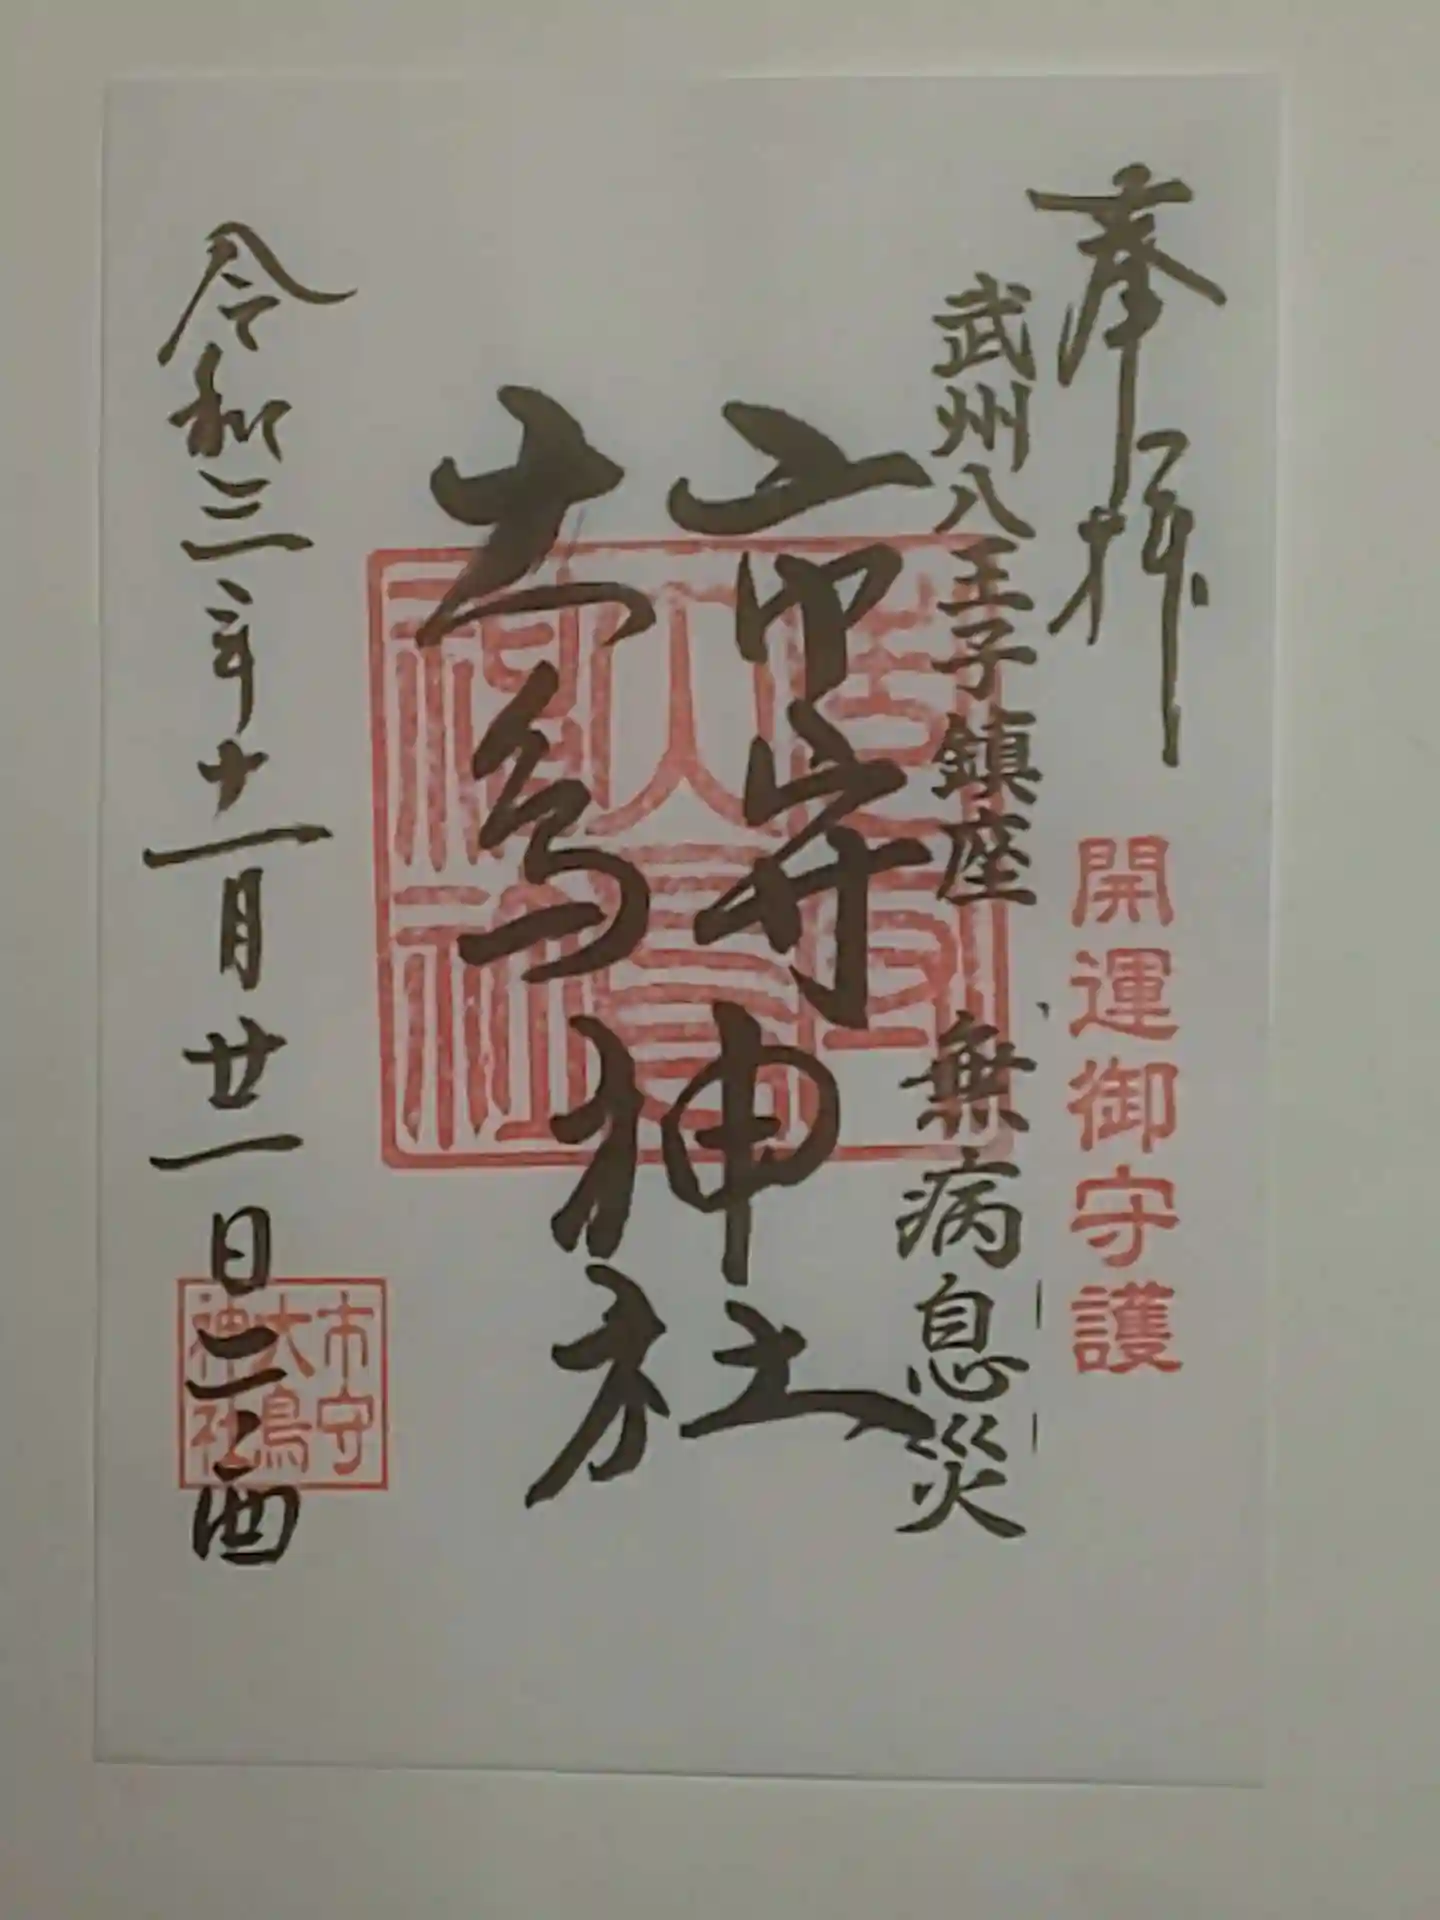 奉拝
開運御守護
武州八王子鎮座 無病息災
市守
大鳥
神社
令和三年十一月廿一日二ノ酉
市守
大鳥
神社